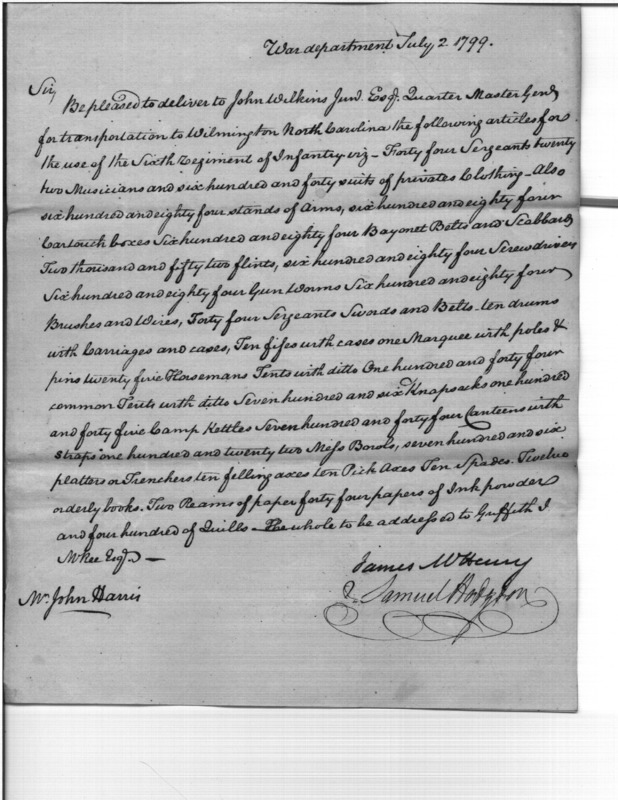 War department July 2 1799.
Sir,
Be pleased to deliver to John Wilkins Junr. Esqr. Quarter Master Genl.
for transportation to Wilmington North Carolina the following articles for
the use of the Sixth Regiment of Infantry viz - Forty four Sergeants twenty
two Musicians and six hundred and forty suits of privates Clothing - Also
six hundred and eighty four stands of Arms, six hundred and eighty four
Cartouch boxes Six hundred and eighty four Bayonet Belts and Scabbards
Two thousand and fifty two flints, six hundred and eighty four Screwdrivers
Six hundred and eighty four Gun Worms Six hundred and eighty four
Brushes and Wires, Forty four Sergeants Swords and Belts. ten drums
with Carriages and cases, Ten fifes with cases one Marquee with poles &
pins twenty five Horsemans Tents with ditto One hundred and forty four
common Tents with ditto Seven hundred and six Knapsacks one hundred
and forty five Camp Kettles Seven hundred and forty four Canteens with
straps one hundred and twenty two Mess Bowls, seven hundred and six
platters or Trenchers ten felling axes ten Pick Axes Ten Spades. Twelve
orderly books. Two Reams of paper forty four papers of Ink powder
and four hundred of Quills - The whole to be addressed to Griffith I
McRee Esqr. -
James McHenry
Mr. John Harris
Samuel Hodgdon